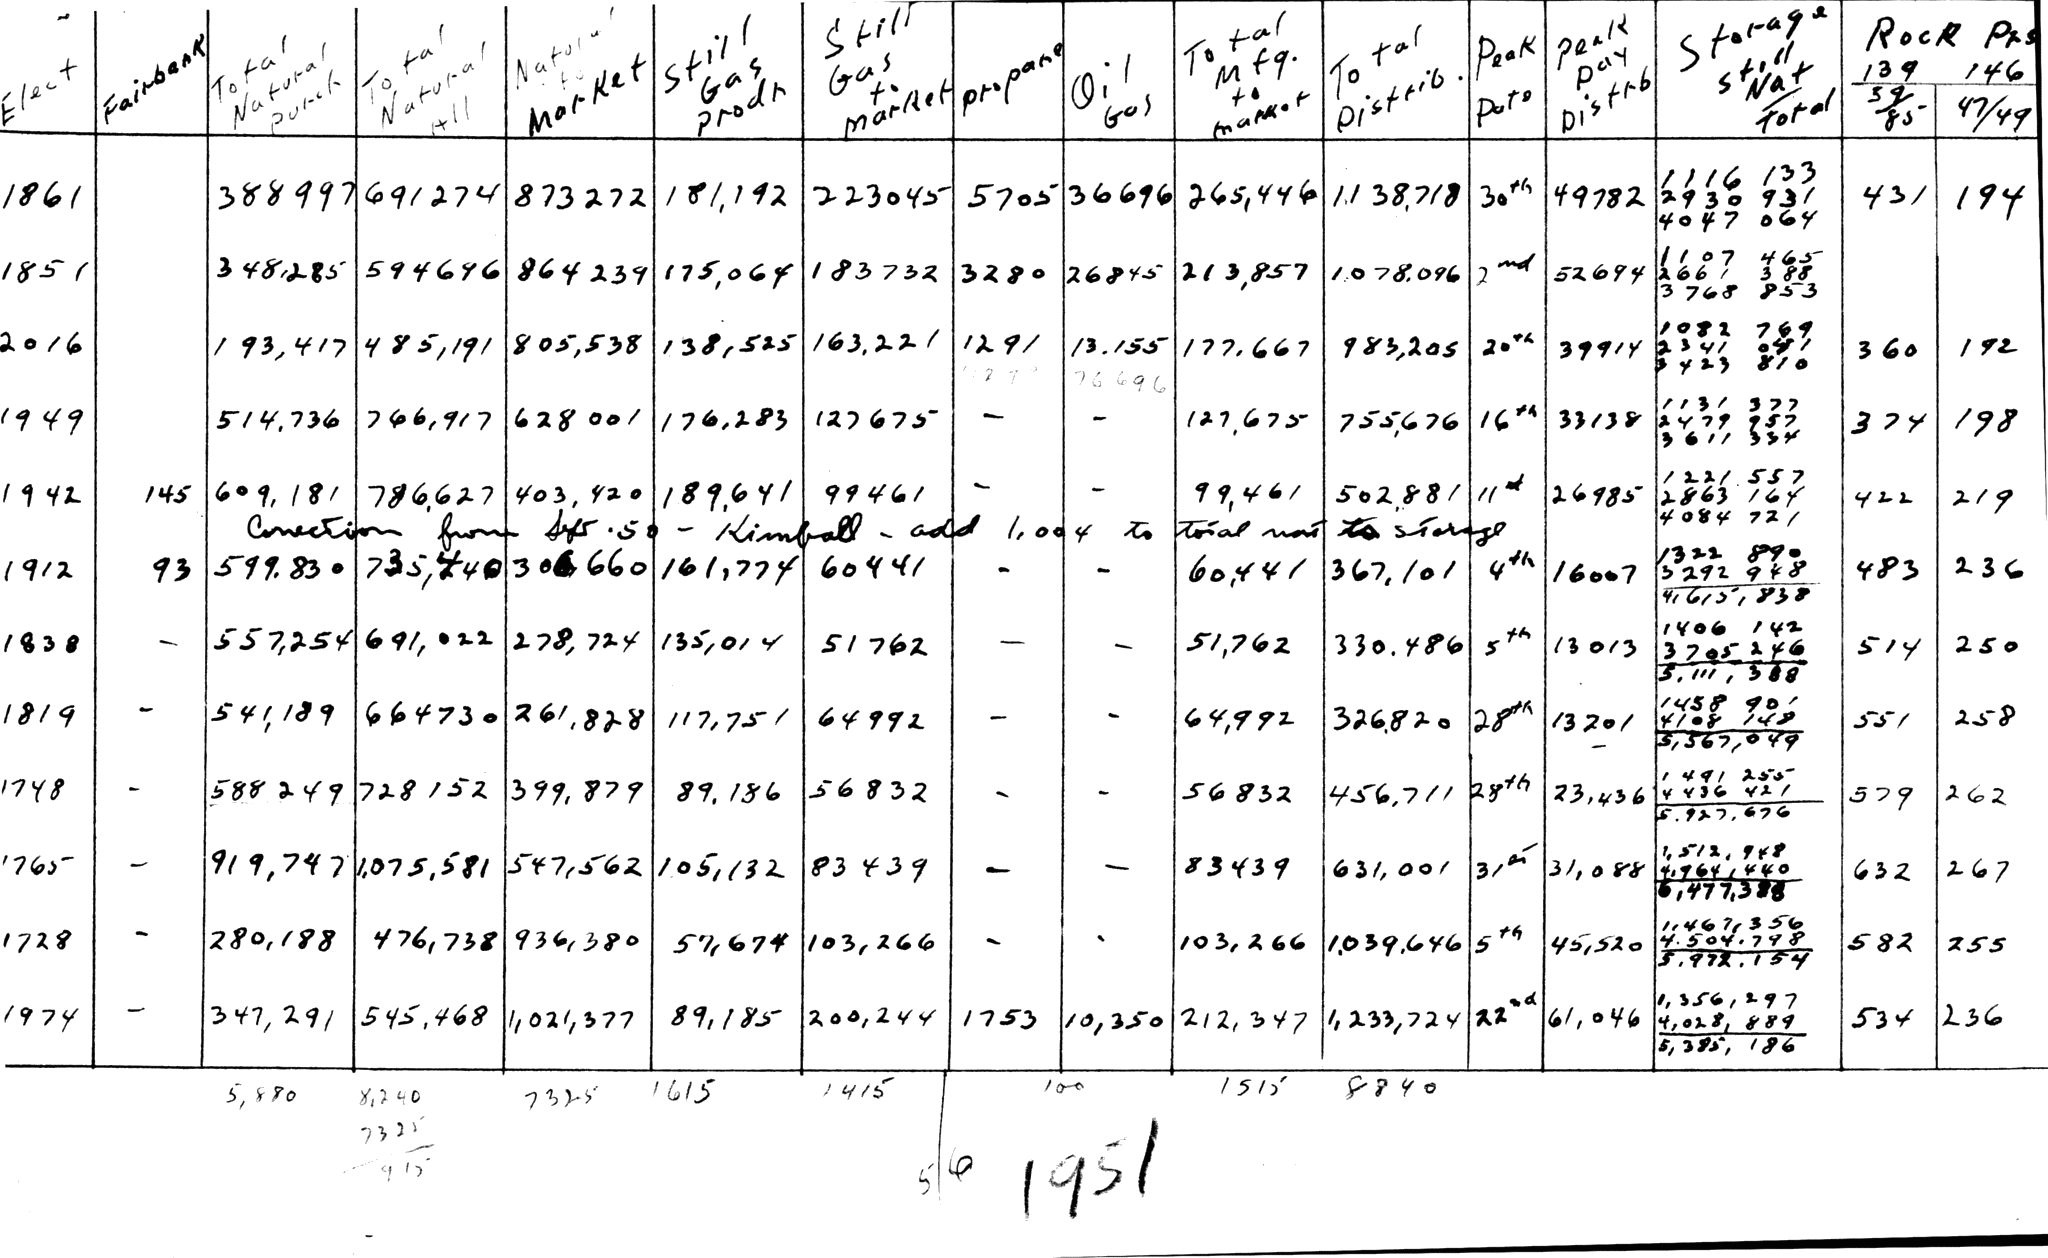 Elect Fairbank Total Natural purch Total Natural All Natural to Market Still Gas Prodn Still Gas to market propane Oil Gas Total Mfg. to market Total Distrib. Peak Date Peak Day Distrb Storage Still Nat Total Rock Prs
139 146
59/85 47/49
1861 388997 691274 873272 181,192 223045 5705 36696 265,446 1138,718 30th 49782 1116 133 431 194
2930 931
4047 064
1851 348,285 594646 864239 175,064 183732 3280 26845 213,857 1.078.096 2nd 52694 1107 465
2661 388
3768 853
2016 193,417 485,191 805,538 138,525 163,221 1291 13.155 177.667 983,205 20th 39914 1082 769 360 192
2341 041
3423 810
76696
1949 514,736 766,917 628001 176,283 127675 - - 127,675 755,676 16th 33138 1131 377 374 198
2479 957
3611 334
1942 145 609,181 786,627 403,420 189,641 99461 - - 99,461 502,881 11th 26985 1221 557 422 219
2863 164
4084 721
Correction from - Kimball - add 1,004 to total nat to storage
1912 93 599.830 735,240 306660 161,774 60441 - - 60,441 367,101 4th 16007 1322 890 483 236
3292 948
4,615,838
1838 - 557,254 691,022 278,724 135,014 51762 - - 51,762 330.486 5th 13013 1406 142 514 250
3705 246
5,111,388
1819 - 541,189 664730 261,828 117,751 64992 - - 64,992 326,820 28th 13201 1458 901 551 258
4108 148
5,567,049
1748 - 588249 728152 399,879 89,186 56832 - - 56832 456,711 28th 23,436 1491 255 579 262
4436 421
5.927.676
1765 - 919,747 1,075,581 547,562 105,132 83439 - - 83439 631,001 31st 31,088 1,512,948 632 267
4,964,440
6,477,388
1728 - 280,188 476,738 936,380 57,674 103,266 - - 103,266 1,039,646 5th 45,520 1,467,356 582 255
4.504.798
5.972.154
1974 - 347,291 545,468 1,021,377 89,185 200,244 1753 10,350 212,347 1,233,724 22nd 61,046 1,356,297 534 236
4,028,889
5,385,186
5,880 8,240 7325 1615 1415 100 1515 8840
7325
915
56 1951